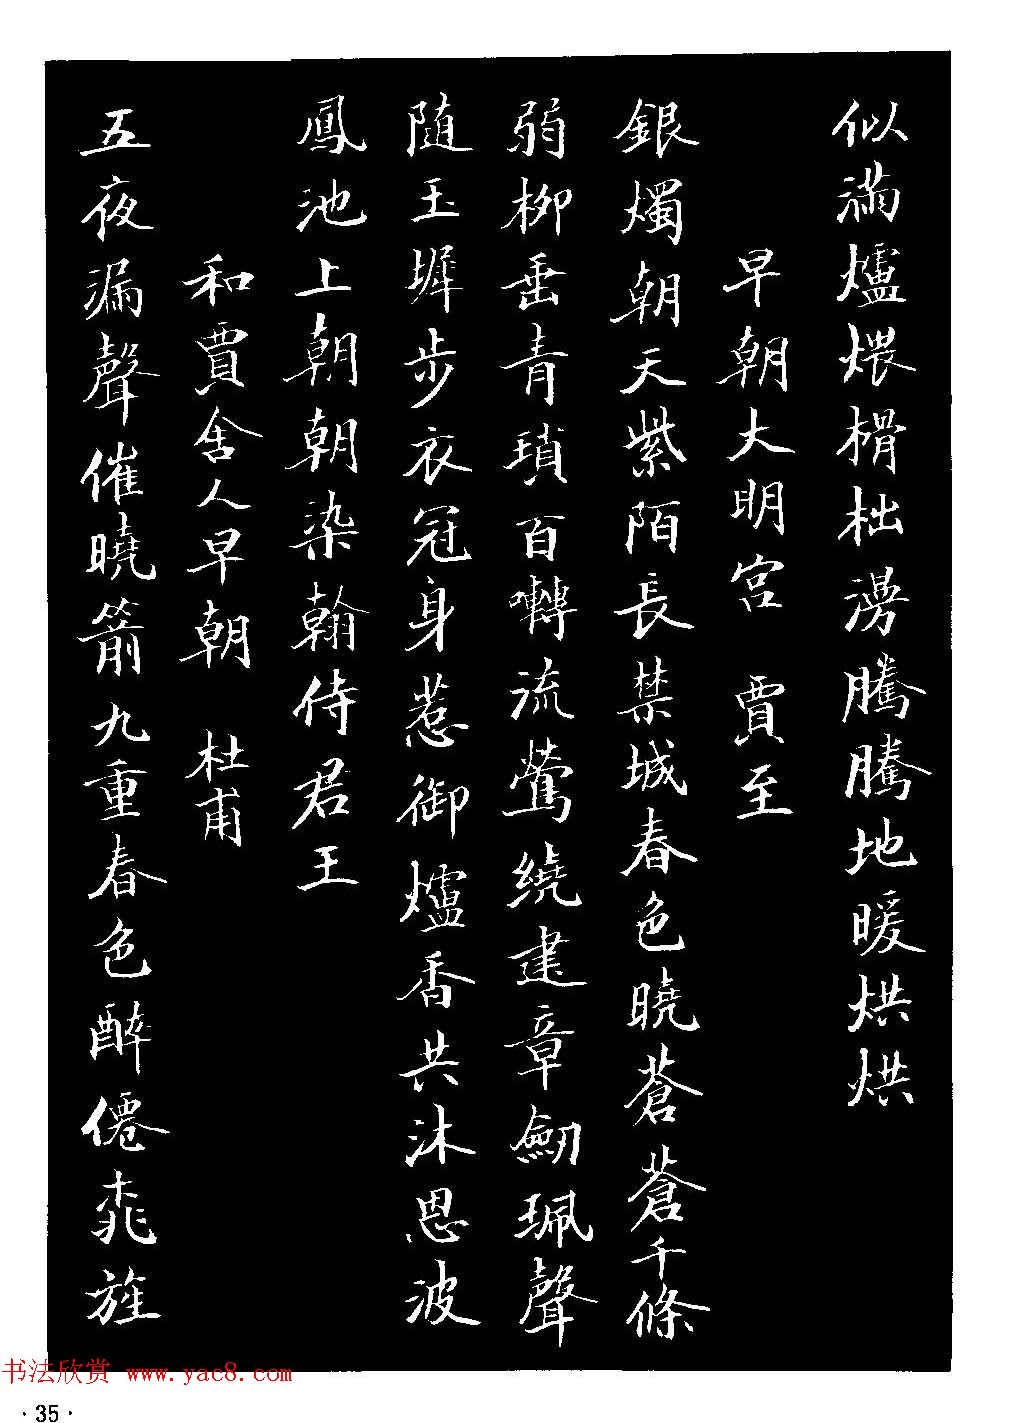 似滿爐煨榾柮漫騰騰地暖烘烘
早朝大明宮 賈至
銀燭朝天紫陌長禁城春色曉蒼蒼千條
弱柳垂青瑣百囀流鶯繞建章劒珮聲
随玉墀步衣冠身惹御爐香共沐恩波
鳳池上朝朝染翰侍君王
和賈舍人早朝 杜甫
五夜漏聲催曉箭九重春色醉僊桃旌
书法欣赏 www.yac8.com
·35·